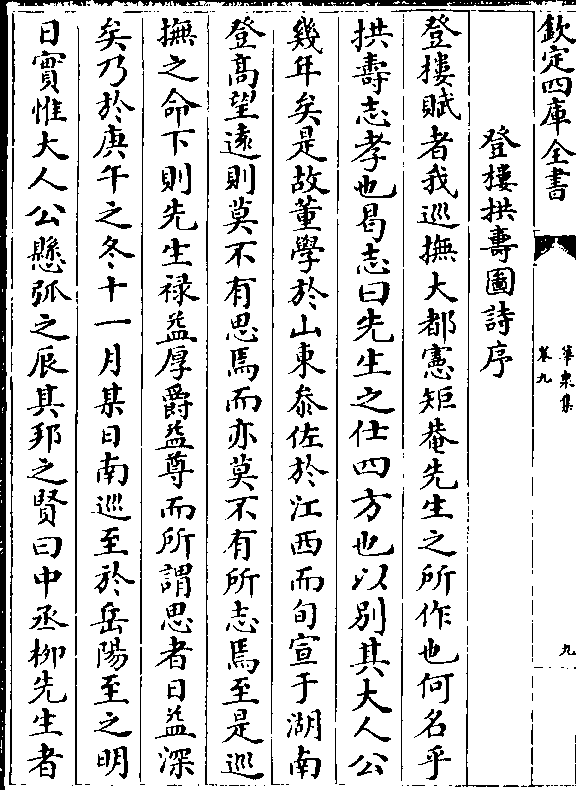 欽定四庫全書
卷九
九
登樓拱壽圖詩序
登樓賦者我巡撫大都憲矩菴先生之所作也何名乎
拱壽志孝也曷志曰先生之仕四方也以别其大人公
幾年矣是故董學於山東叅佐於江西而旬宣于湖南
登髙望逺則莫不有思焉而亦莫不有所志焉至是巡
撫之命下則先生禄益厚爵益尊而所謂思者日益深
矣乃於庚午之冬十一月某日南巡至於岳陽至之明
日實惟大人公懸弧之辰其邦之賢曰中丞栁先生者